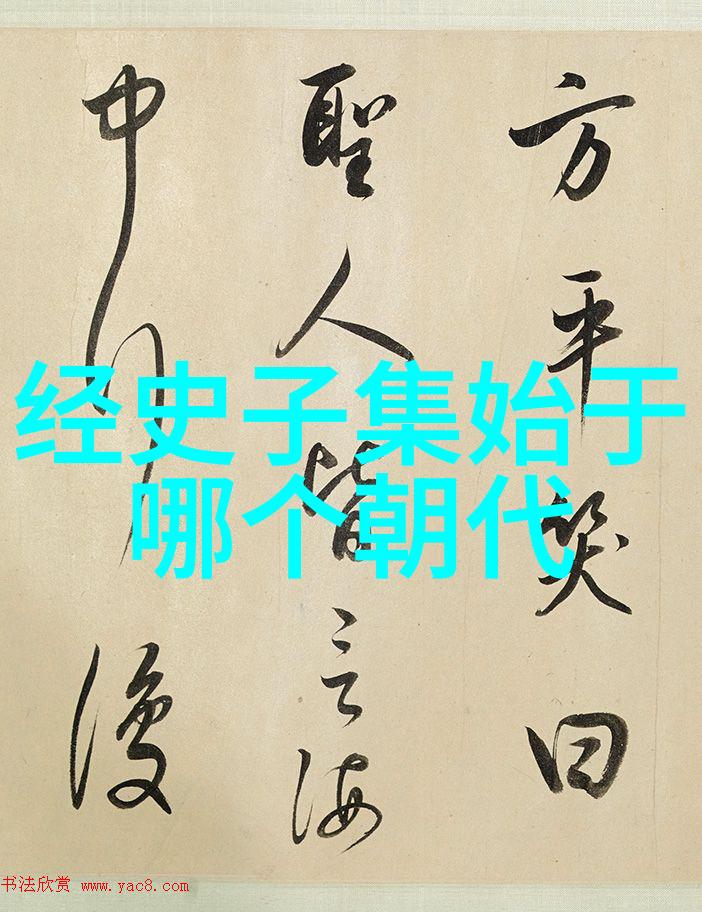 方平笑曰
聖人皆言海
中行復
经史子集始于
哪个朝代
书法欣赏 www.yac8.com